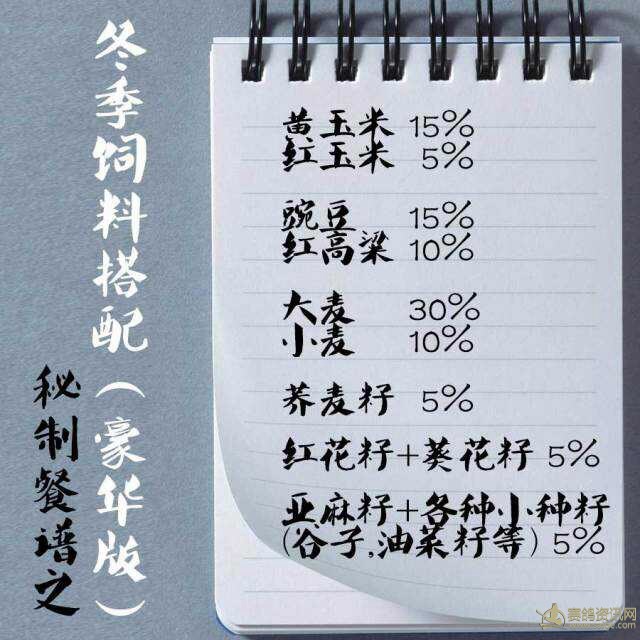 秘制餐谱之
冬季饲料搭配(豪华版)
黄玉米 15%
红玉米 5%
豌豆 15%
红高粱 10%
大麦 30%
小麦 10%
荞麦籽 5%
红花籽+葵花籽 5%
亚麻籽+各种小种籽
(谷子,油菜籽等) 5%
赛鸽资讯网